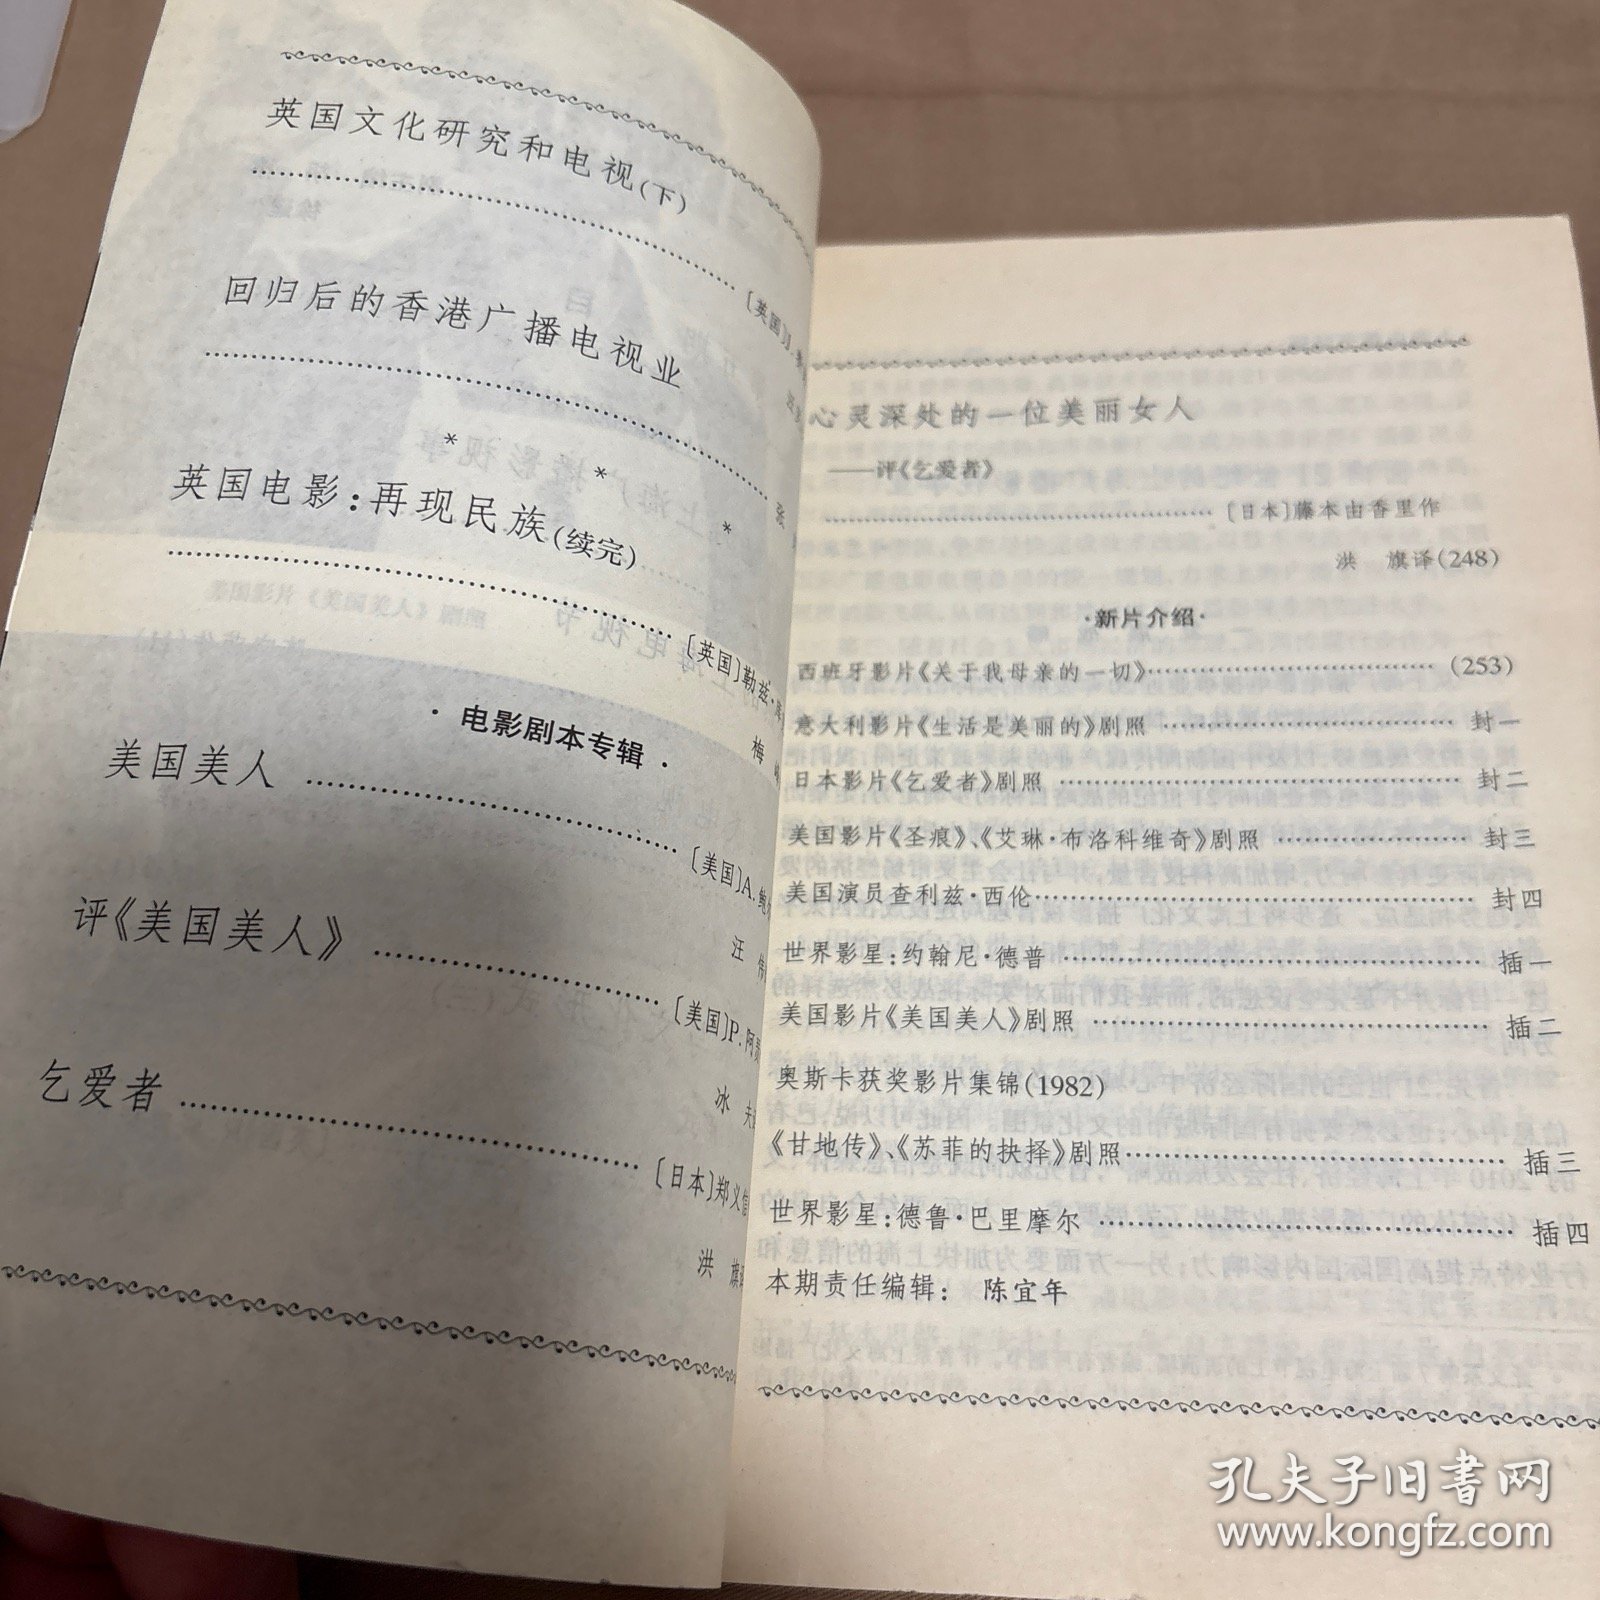 英国文化研究和电视(下)
〔英国〕J·
回归后的香港广播电视业
张
* * *
英国电影:再现民族(续完)
〔英国〕勒兹·库
梅 峰
·电影剧本专辑·
美国美人
〔美国〕A.鲍
汪 伟
评《美国美人》
〔美国〕P.阿
冰 夫
乞爱者
〔日本〕郑义信
洪 旗
心灵深处的一位美丽女人
——评《乞爱者》
〔日本〕藤本由香里作
洪 旗译(248)
·新片介绍·
西班牙影片《关于我母亲的一切》 (253)
意大利影片《生活是美丽的》剧照 封一
日本影片《乞爱者》剧照 封二
美国影片《圣痕》、《艾琳·布洛科维奇》剧照 封三
美国演员查利兹·西伦 封四
世界影星:约翰尼·德普 插一
美国影片《美国美人》剧照 插二
奥斯卡获奖影片集锦(1982)
《甘地传》、《苏菲的抉择》剧照 插三
世界影星:德鲁·巴里摩尔 插四
本期责任编辑: 陈宜年
孔夫子旧书网
www.kongfz.com